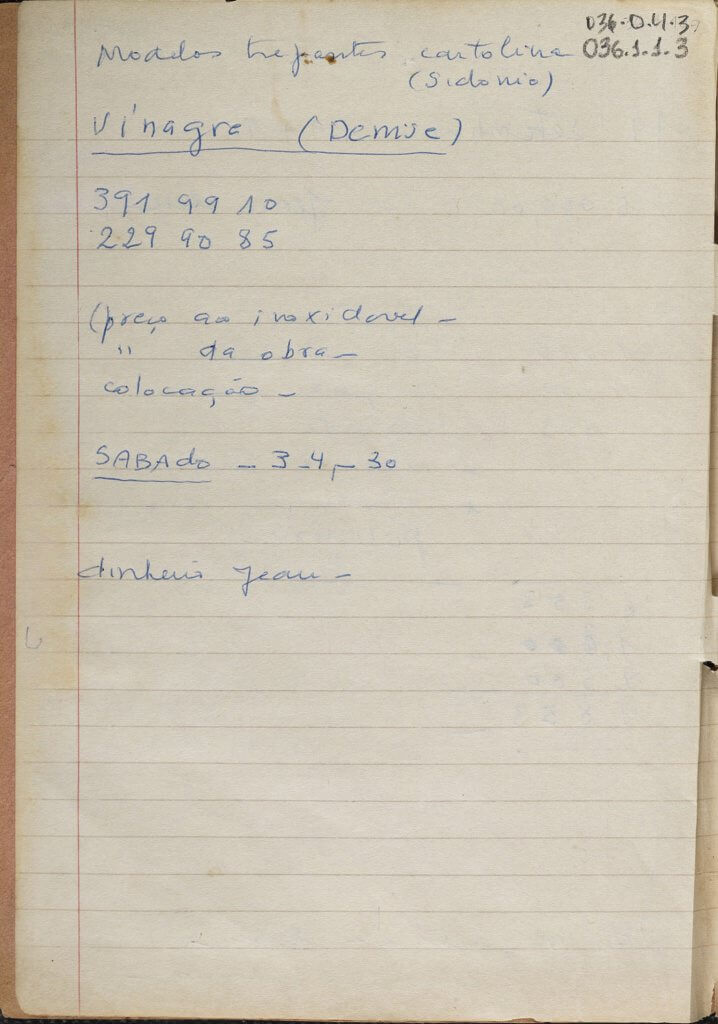 036.0.4.3
036.1.1.3
Modelos trepantes cartolina
(Sidonio)
Vinagre (Denise)
391 99 10
229 90 85
(preço aço inoxidavel -
" da obra -
colocação -
SABAdo - 3-4,- 30
dinheiro Jean -